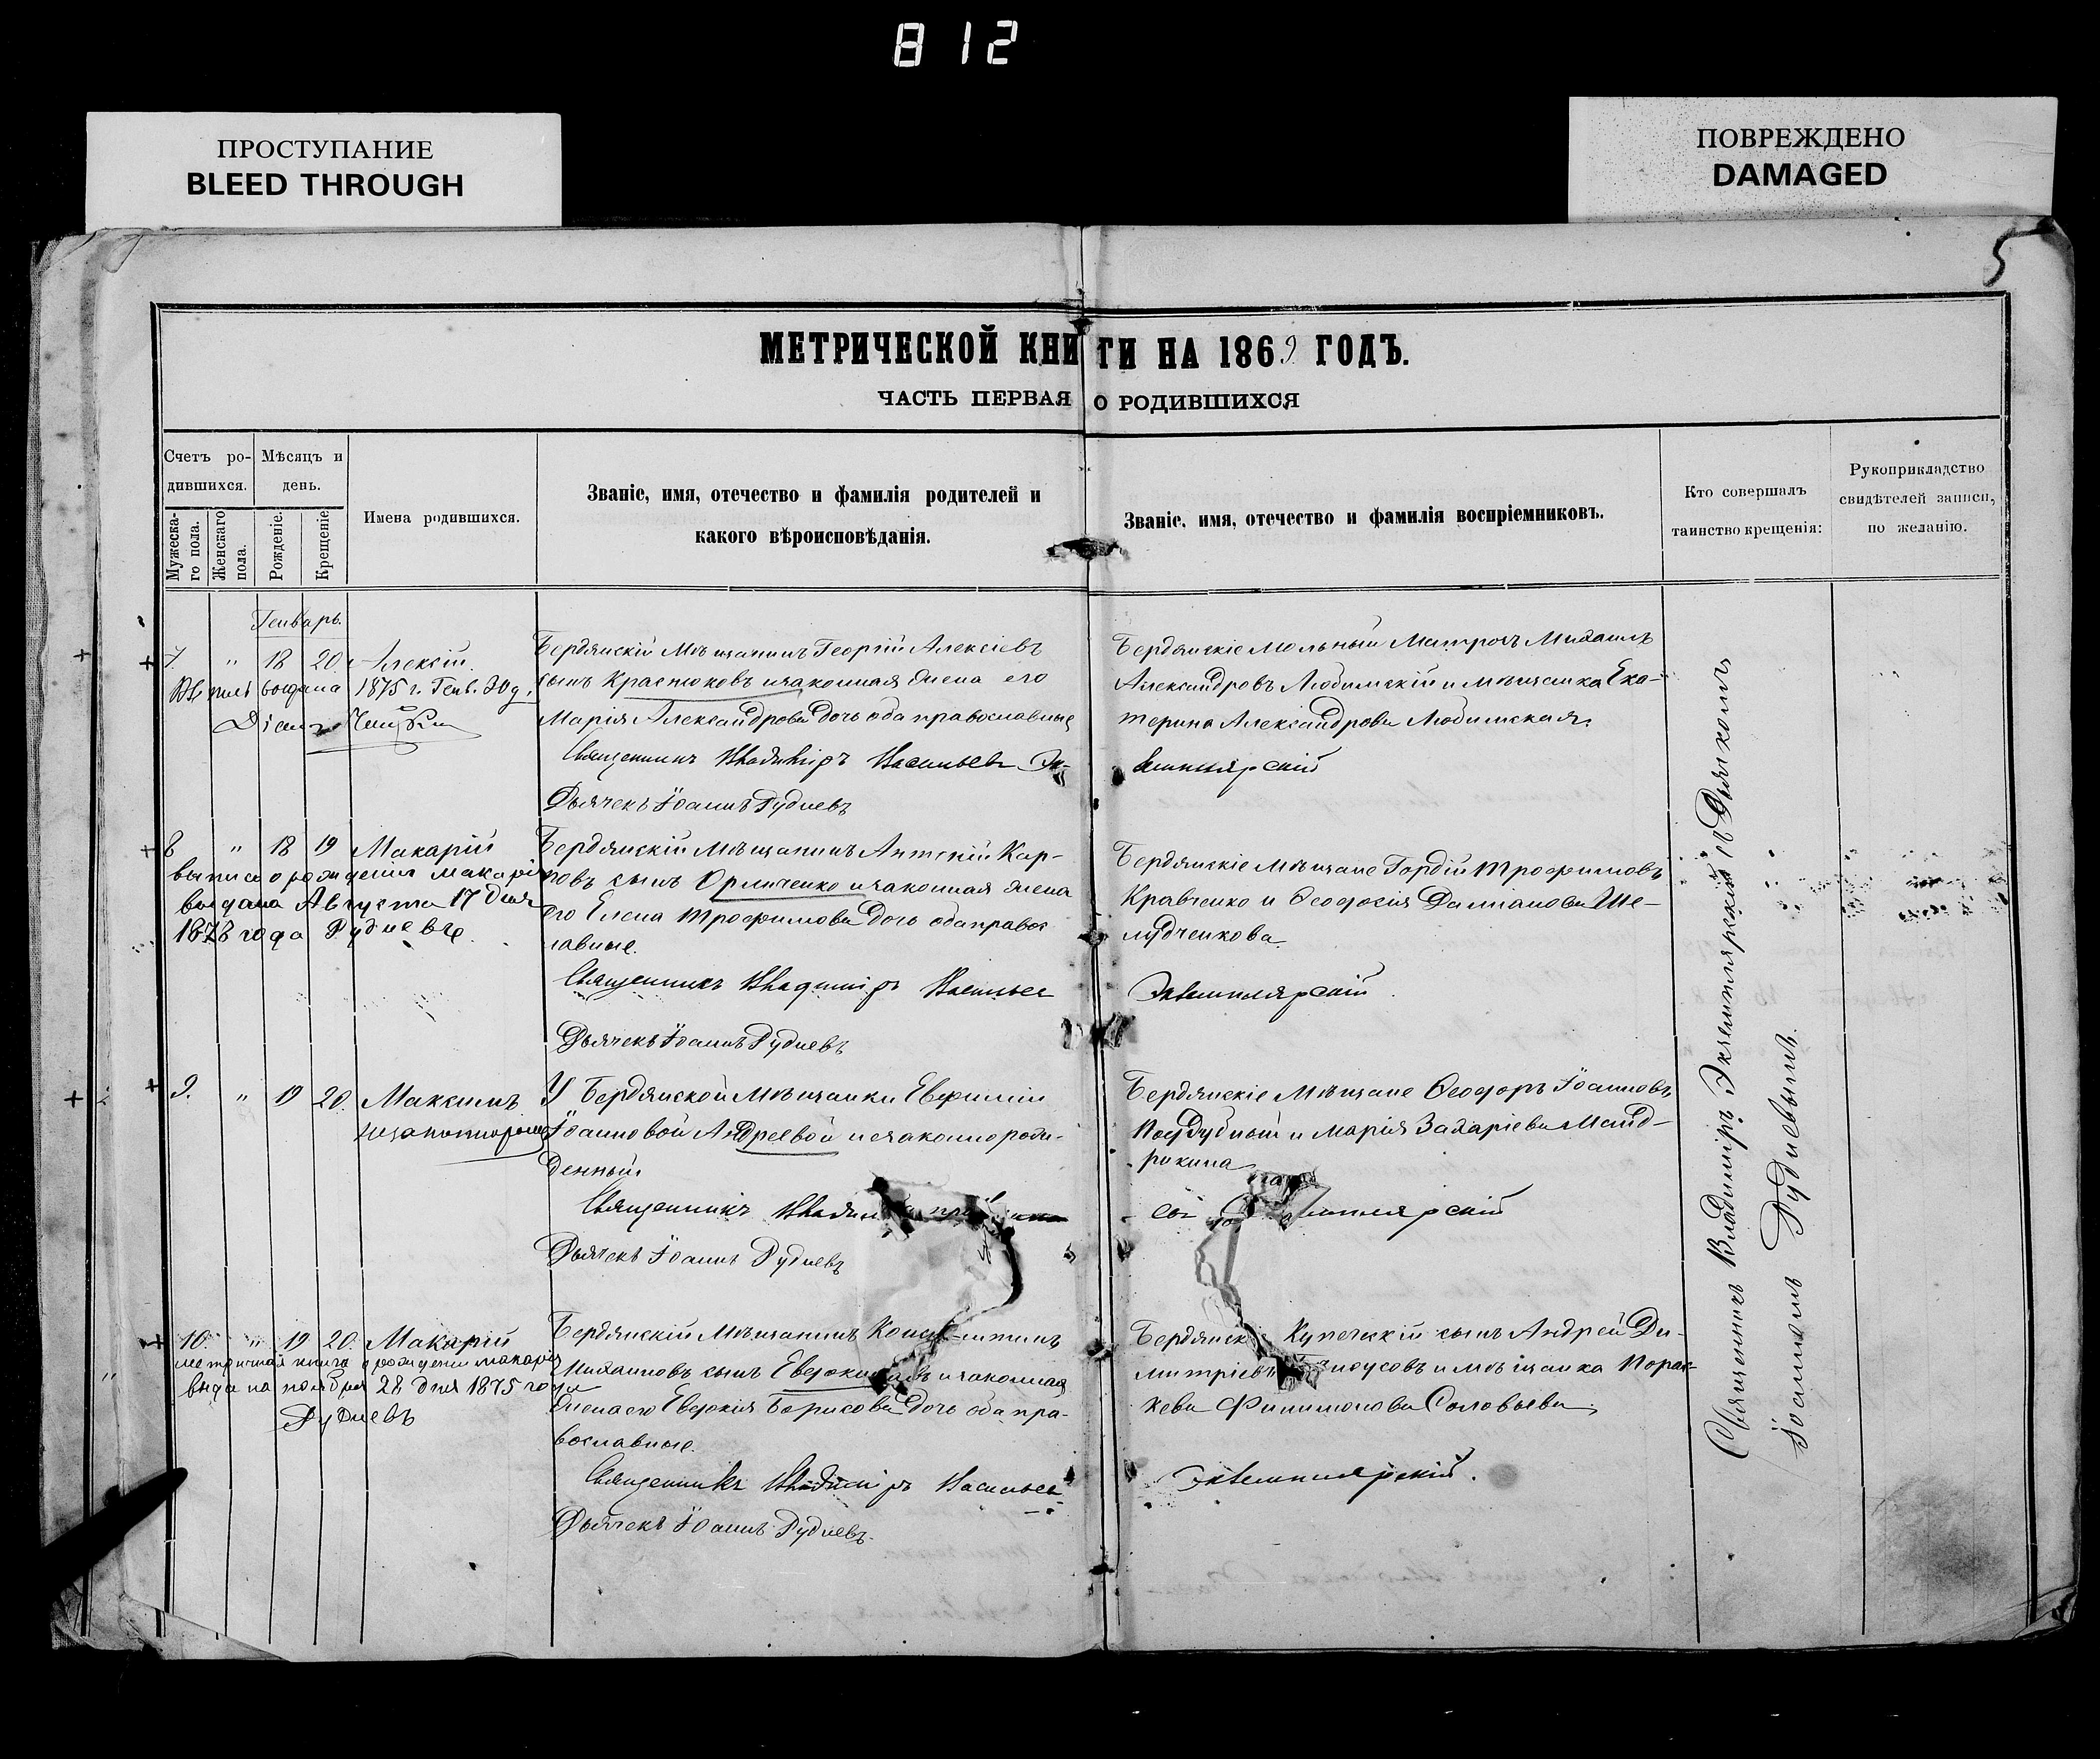 812
ПРОСТУПАНИЕ
BLEED THROUGH
ПОВРЕЖДЕНО
DAMAGED
5
МЕТРИЧЕСКОЙ КНИГИ НА 1869 ГОДЪ.
ЧАСТЬ ПЕРВАЯ О РОДИВШИХСЯ
Счетъ ро-
дившихся.
Мужеска-
го пола.
Женскаго
пола.
Мѣсяцъ и
день.
Рожденіе.
Крещеніе
Имена родившихся.
Званіе, имя, отечество и фамилія родителей и
какого вѣроисповѣданія.
Званіе, имя, отечество и фамилія воспріемниковъ.
Кто совершалъ
таинство крещенія:
Рукоприкладство
свидѣтелей записи,
по желанію.
Генварь.
7. " 18 20 Алексій.
выдана 1875 г. Генв. 30 д.
Бердянскій Мѣщанинъ Георгій Алексіевъ
сынъ Крастюковъ и законная жена его
Марія Александрова дочь оба православные
Священникъ Владиміръ Васильев Эк-
Дьячекъ Іоаннъ Рудневъ
Александровъ Любимскій и мѣщанка Ека-
терина Александрова Любимская.
земплярскій
8 " 18 19 Макарій
выпись о рождении Макарія
выдана Августа 17 дня
1878 года Рудневъ
Бердянскій Мѣщанинъ Антоній Кар-
повъ сынъ Орличенко и законная жена
его Елена Трофимова дочь оба правос
лавные.
Священникъ Владиміръ Васильев
Дьячекъ Іоаннъ Рудневъ
Бердянскіе Мѣщане Гордій Трофимовъ
Кравченко и Ѳеодосія Даміанова Ше-
лудченкова
Экземплярскій
9. " 19 20. Максимъ
незаконнорож
У Бердянской Мѣщанки Евфиміи
Іоанновой Андреевой незаконнорож-
денный
Священникъ Влади
Дьячекъ Іоаннъ Рудневъ
Бердянскіе Мѣщане Ѳеодоръ Іоанновъ
Поддубный и Марія Захаріева Манд-
рыкина
емплярскій
10. " 19 20. Макарій
метричная о рождении Макарія
выдана ноября 28 дня 1875 года
Рудневъ
Бердянскій Мѣщанинъ Константинъ
Михаиловъ сынъ Евдокимовъ и законная
жена его Евдокія Борисова дочь оба пра-
вославные.
Священникъ Владиміръ Васильев
Дьячекъ Іоаннъ Рудневъ.
Бердянскій Купеческій сынъ Андрей Ди-
митріевъ ноусовъ и мѣщанка Порас-
кева Филимонова Соловьева.
Экземплярскій.
Священникъ Владиміръ Экземплярскій съ Дьячкомъ
Іоанномъ Рудневымъ.